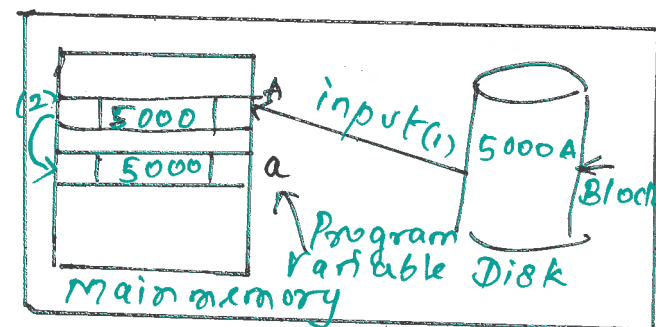 (2)
5000
A
input(1)
5000A
5000
a
Block
Program
Variable
Disk
Main memory